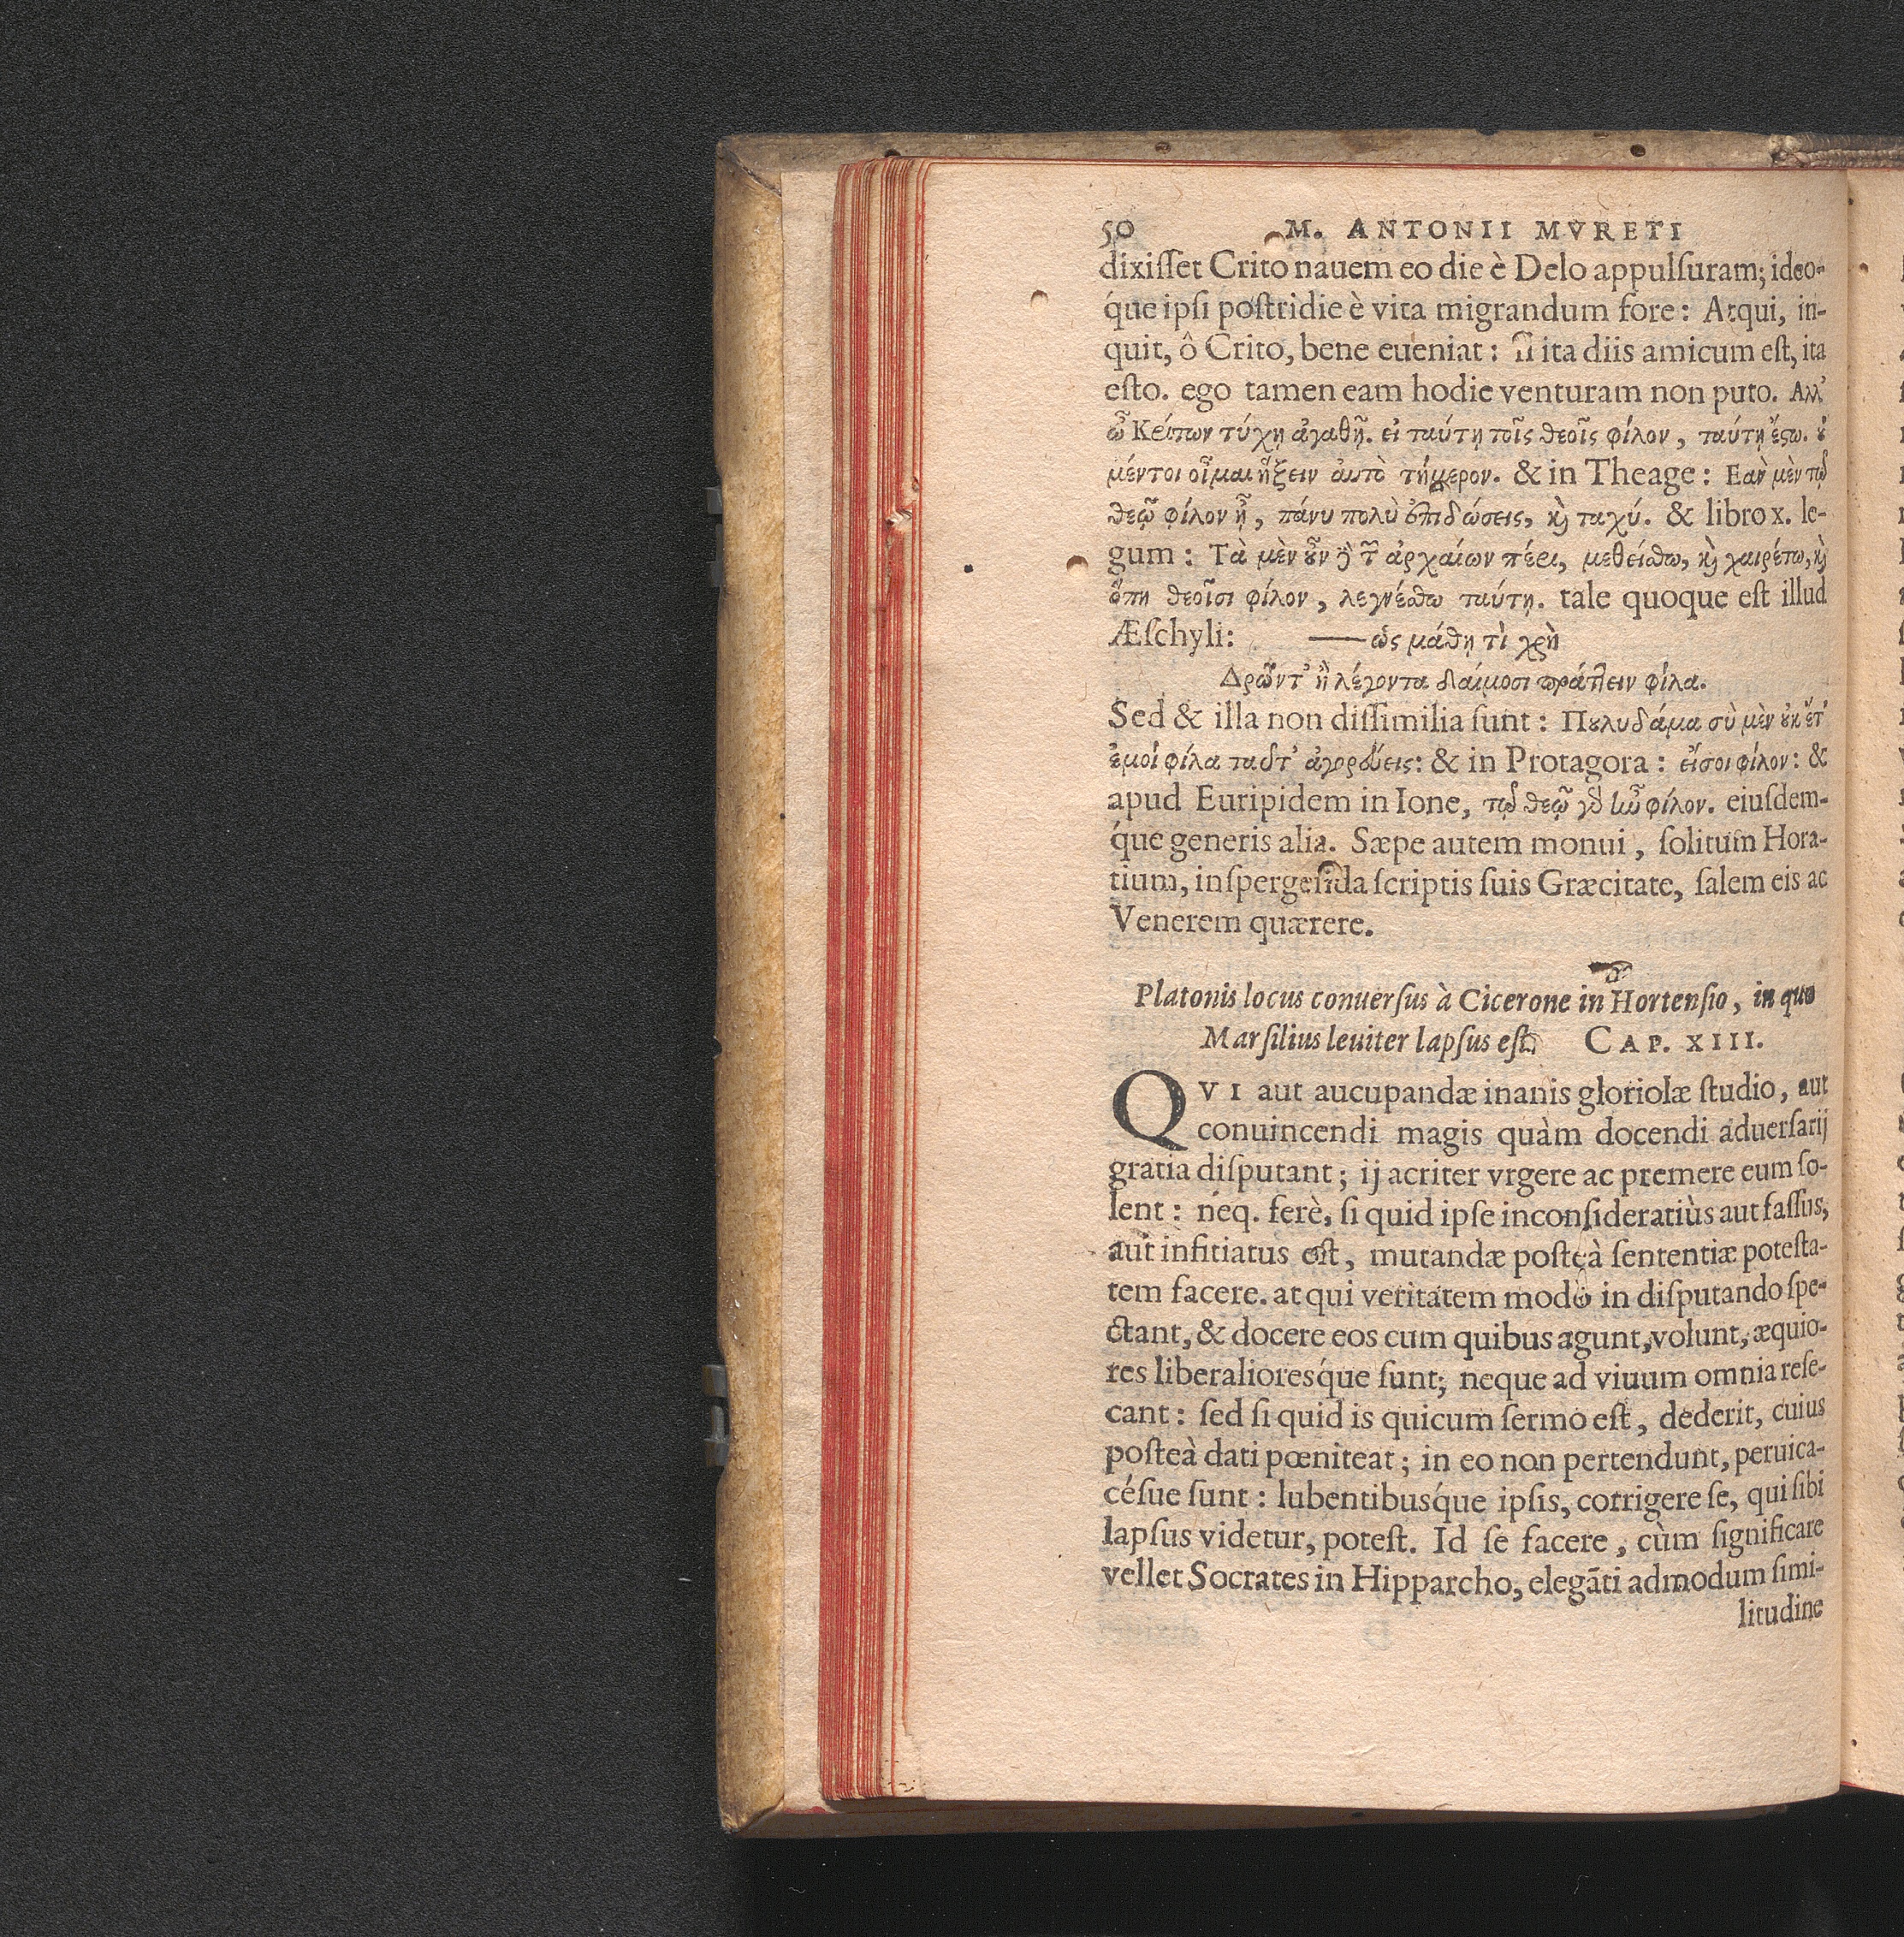 50 M. ANTONII MVRETI
dixiſſet Crito nauem eo die è Delo appulſuram; ideo-
que ipſi poſtridie è vita migrandum fore: Atqui, in-
quit, ô Crito, bene eueniat: ſi ita diis amicum eſt, ita
eſto. ego tamen eam hodie venturam non puto. Αλλ'
ὦ Κρίτων τύχῃ ἀγαθῇ. εἰ ταύτῃ τοῖς θεοῖς φίλον, ταύτῃ ἔϛω. ȣ́
μέντοι οἶμαι ἥξειν ἀυτὸ τήμερον. & in Theage: Εαν μὲν τῷ
θεῷ φίλον ᾖ, πάνυ πολὺ ἐπιδώσεις, κὶ ταχύ. & libro x. le-
gum: Τὰ μὲν ȣ̓͂ν δὴ τῶν ἀρχαίων πέρι, μεθείσθω, κὶ χαιρέτω, κὶ
ὅπη θεοῖσι φίλον, λεγέσθω ταύτῃ. tale quoque eſt illud
Æſchyli: —— ὡς μάθῃ τὶ χρὴ
Δρῶντ' ἢ λέγοντα δαίμοσι πράττειν φίλα.
Sed & illa non diſſimilia ſunt: Πȣλυδάμα σὺ μὲν ȣ̓κ ἔτ'
ἐμοὶ φίλα ταῦτ' ἀγορεύεις: & in Protagora: εἴ σοι φίλον: &
apud Euripidem in Ione, τῷ θεῷ γὸ ἦν φίλον. eiuſdem-
que generis alia. Sæpe autem monui, ſolitum Hora-
tium, inſpergenda ſcriptis ſuis Græcitate, ſalem eis ac
Venerem quærere.
Platonis locus conuerſus à Cicerone in Hortenſio, in quo
Marſilius leuiter lapſus eſt. CAP. XIII.
QVI aut aucupandæ inanis gloriolæ ſtudio, aut
conuincendi magis quàm docendi aduerſarij
gratia diſputant; ij acriter vrgere ac premere eum ſo-
lent: néq. ferè, ſi quid ipſe inconſideratiùs aut faſſus,
aut infitiatus eſt, mutandæ poſteà ſententiæ poteſta-
tem facere. at qui veritatem modò in diſputando ſpe-
ctant, & docere eos cum quibus agunt, volunt, æquio-
res liberalioresq́ue ſunt; neque ad viuum omnia reſe-
cant: ſed ſi quid is quicum ſermo eſt, dederit, cuius
poſteà dati pœniteat; in eo non pertendunt, peruica-
céſue ſunt: lubentibusq́ue ipſis, corrigere ſe, qui ſibi
lapſus videtur, poteſt. Id ſe facere, cùm ſignificare
vellet Socrates in Hipparcho, elegãti admodum ſimi-
litudine